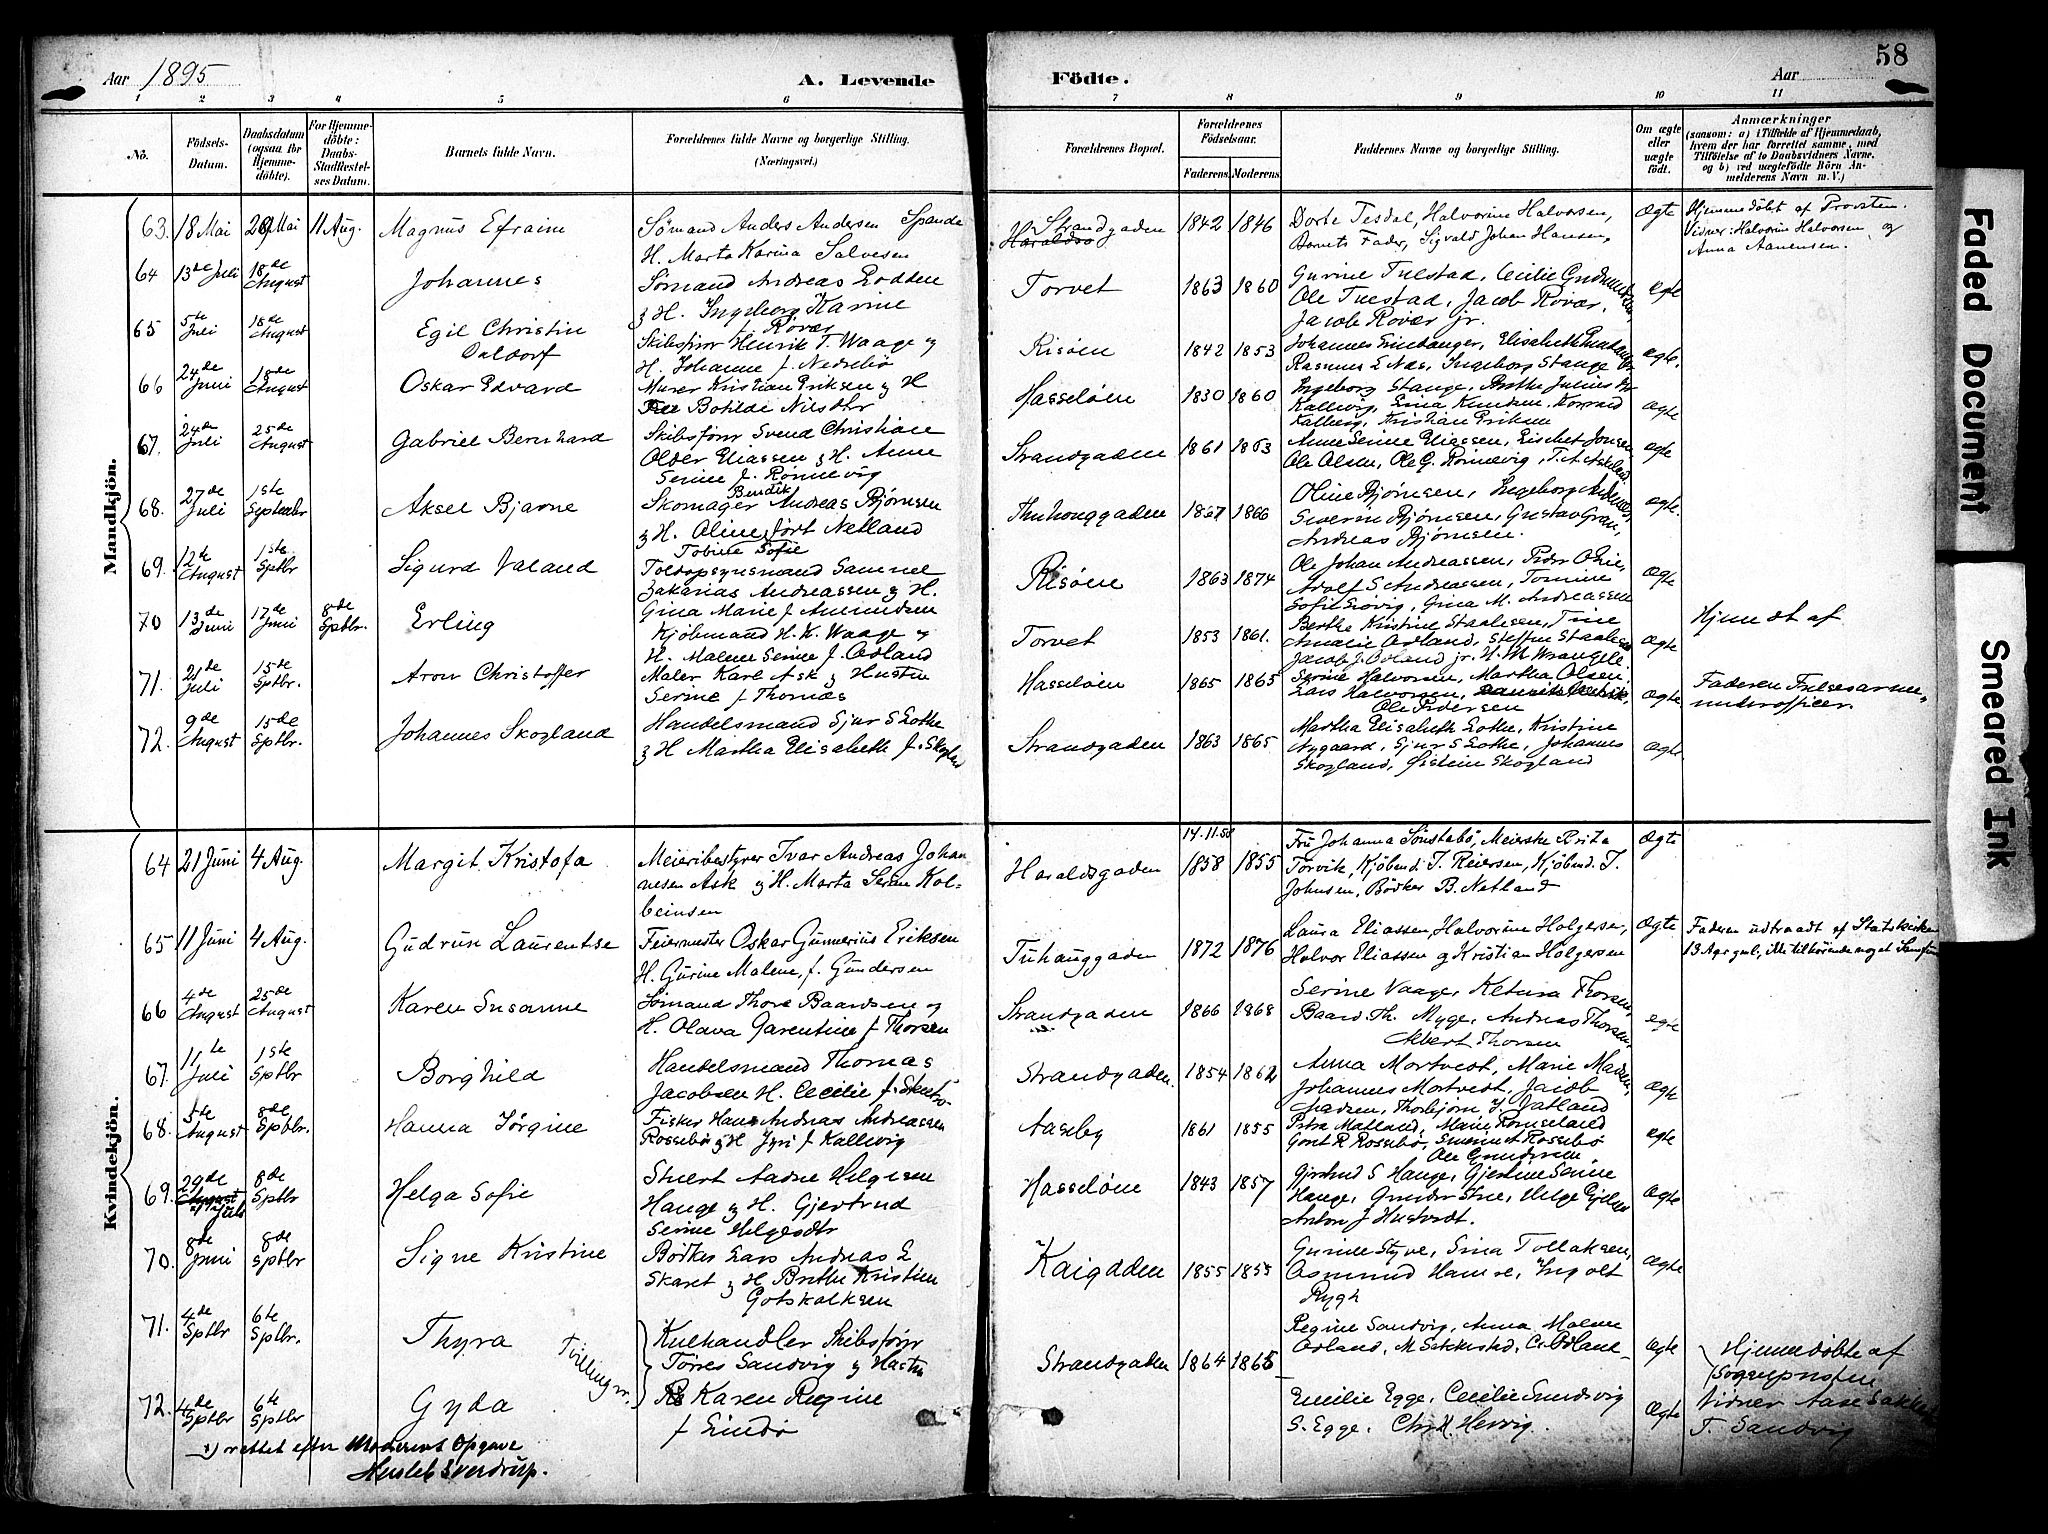 58
Aar 1895
A. Levende
Födte.
Aar
1 2 3 4 5 6 7 8 9 10 11
No.
Födsels-Datum.
Daabsdatum (ogsaa for Hjemme-döbte).
For Hjemme-döbte: Daabs-Stadfæstel-ses Datum.
Barnets fulde Navn.
Forældrenes fulde Navne og borgerlige Stilling. (Næringsvei.)
Forældrenes Bopæl.
Forældrenes Födselsaar.
Faderens. Moderens.
Faddernes Navne og borgerlige Stilling.
Om ægte eller uægte födt.
Anmærkninger
(saasom: a) i Tilfælde af Hjemmedaab,
hvem der har forrettet samme, med
Tilföielse af to Daabsvidners Navne,
og b) ved uægtefödte Börn An-
melderens Navn m. V.)
Mandkjön.
63. 18 Mai 20 Mai 11 Aug. Magnus Efraim Sømand Anders Andersen Spande
H. Marta Karina Salvesen
Strandgaden 1842 1846 Dorte Tesdal, Halvorine Halvorsen,
Barnets Fader, Sigvald Johan Hansen,
Ægte Hjemmedöbt af Provsten.
Vidner: Halvorine Halvorsen og
Anna Aanensen.
64 13de Juli 18de August Johannes Sømand Andreas Lodden
& H. Ingeborg Karine
f. Røvær
Torvet 1863 1860 Gurine Tuestad, Cecilie
Ole Tuestad, Jacob Røvær,
Jacob Røvær jr.
ægte
65 5te Juli 18de August Egil Christin
Daldorf
Skibsfører Henrik T. Waage og
H. Johanne f. Nedrebø
Risøen 1842 1853 Johannes Grindanger, Elisabeth
Rasmus E Næs, Ingeborg Stange
ægte.
66 24de Juni 18de August Oskar Edvard Murer Kristian Eriksen & H
Botilde Nilsdtr
Hasseløen 1830 1860 Ingeborg Stange, Berthe Julius
Kallevig, Erina Knudsen, Konrad
Kalberg, Kristian Eriksen
Ægte
67. 24de Juli 25de August Gabriel Bernhard Skibsfører Svend Christian
Older Eliassen & H. Anne
Serine f. Rønnevig
Strandgaden 1861 1863 Anne Serine Eliassen, Lisebet Jonsen
Ole Olsen, Ole G. Rønnevig, T. A. Askeland
Ægte
68. 27de Juli 1ste September Aksel Bjarne Skomager Bendik Andreas Bjørnsen
& H. Oline født Netland
Tuhauggaden 1867 1866 Oline Bjørnsen, Ingeborg
Severin Bjørnsen, Gustav Gran,
Andreas Bjørnsen.
Ægte.
69. 12te August 1ste Sptbr Sigurd Valand Tobine Sofie
Toldopsynsmand Samuel
Zakarias Andreassen & H.
Gina Marie f Amundsen
Risøen 1863 1874 Ole Johan Andreassen, Peder Olsen,
Adolf S Andreassen, Tomine
Sofie Søvig, Gina M. Andreassen
Ægte
70 13de Juni 17de Juni 8de Sptbr. Erling Kjøbmand H. K. Waage og
H. Malene Serine f. Odland
Torvet 1853 1861. Berthe Kristine Staalesen, Trine
Amalie Odland, Steffen Staalesen
Jacob J. Odland jr. H. M. Wrangell.
Ægte Hjemdt af
71. 21de Juli 15de Sptbr. Aron Christoffer Maler Karl Ask & Hustru
Serine f Thomas
Hasseløen 1865 1865 Serine Halvorsen, Martha Olsen,
Lars Halvorsen,
Ole Pedersen
Ægte Faderen Frelsesarme-
underofficer.
72. 9de August 15de Sptbr. Johannes Skogland Handelsmand Sjur S Lothe
& H Martha Elisabeth f. Skogland
Strandgaden 1863 1865 Martha Elisabeth Lothe, Kristine
Nygaard, Sjur S Lothe, Johannes
Skogland, Øistein Skogland
Ægte
Kvindekjön.
64 21 Juni 4 Aug. Margit Kristofa Meieribestyrer Ivar Andreas Johan
nesen Ask og H. Marta Serine Kol-
beinsen
Haraldsgaden 14.11.58 1858 1855 Fru Johanna Sønstabø, Meierske Brita
Torvik, Kjøbmd. T. Reiersen, Kjøbmd. T.
Johnsen, Bødker B. Netland
Ægte
65 11 Juni 4 Aug. Gudrun Laurentse Feiermester Oskar Gunnerius Eriksen
H. Gurine Malene, f. Gundersen
Tuhauggaden 1872 1876 Laura Eliassen, Halvorine Holgersen,
Halvor Eliassen og Kristian Holgersen
Ægte Faderen udtraadt af Statskirken
66 4de August 25de August Karen Susanne Sømand Thore Baardsen og
H. Olava Garentine f Thorsen
Strandgaden 1866 1868 Serine Vaage, Ketura Thorsen,
Baard Th. Myge, Andreas Thorsen,
Albert Thorsen
ægte
67. 11te Juli 1ste Sptbr Borghild Handelsmand Thomas
Jacobsen H. Cecilie f.
Strandgaden 1854 1862 Anna Mortvedt, Marie Madsen,
Johannes Mortvedt, Jacob
Madsen, Thorbjørn Y. Jatland
Ægte
68. 5te August 8de Sptbr. Hanna Jørgine Fisker Hans Andreas Andreassen
Rossebø & H Jyri f Kallevig
Aaseby 1861 1855 Petra Matland, Marie Rameland
Gort R Rossebø, Severin A Rossebø
Ole Gundersen
ægte
69. 29de Juli 8de Sptbr Helga Sofie Stuert Aadne Helgesen
Hauge & H. Gjertrud
Serine Helgesdtr
Hasseløen 1843 1857 Gjertrud S Hauge, Gjertine Serine
Hauge, Gunder Stue, Helge
Anton J Hustvedt.
Ægte
70. 8de Juni 8de Sptbr Signe Kristine Bødker Lars Andreas L
Skaret & H Brithe Kristine
Gotskalksen
Kaigaden 1855 1855 Gurine Styve, Sina Tollaksen,
Osmund Hamre, Ingvolt
Rygh
Ægte
71. 4de Sptbr 6te Sptbr. Thyra Tvillinger Kulhandler Skibsfører
Tørres Sandvig & Hustru
Karen Regine
f Lindø
Strandgaden 1864 1865 Regine Sandvig, Anna Malene
Odland, M Sakkestad, C. Odland
Ægte Hjemmedøbte af
Sogneprästen
72. 4de Sptbr 6te Sptbr Gyda
Emilie Egge, Cecilie Sundsvig
S. Egge, Chr. H. Hervig.
Ægte Vidner Aase
T. Sandvig
x) rettet efter Moderens Opgave
Hersleb Sverdrup.
Faded Document
Smeared Ink